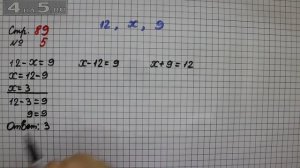 4apk5.ru
Стр. 89
№ 5
12, x, 9
12-x=9 x-12=9 x+9=12
x=12-9
x=3
12-3=9
9=9
Ответ: 3